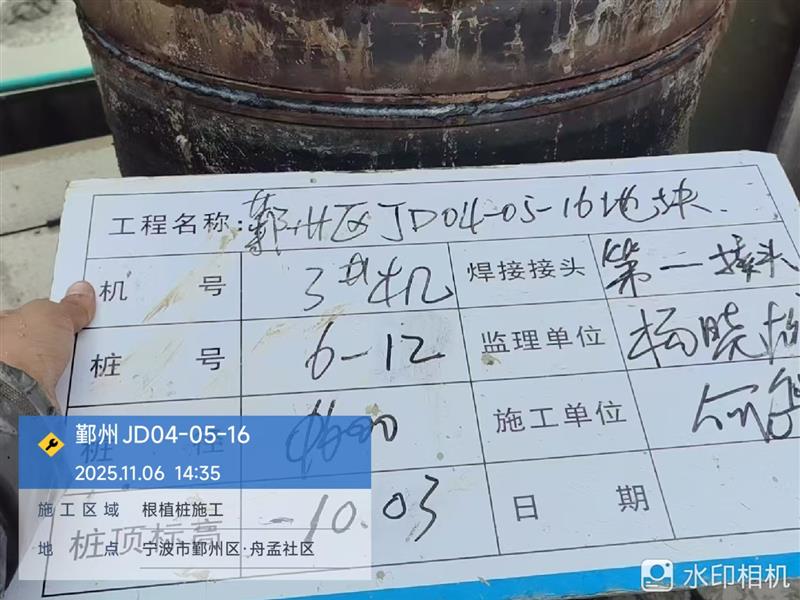 工程名称: 鄞州区JD04-05-16地块
机 号 3#机 焊接接头 第一接头
桩 号 6-12 监理单位 杨晓
桩 径 施工单位
桩顶标高 -10.03 日 期
鄞州JD04-05-16
2025.11.06 14:35
施工区域 根植桩施工
地 点 宁波市鄞州区·舟孟社区
水印相机